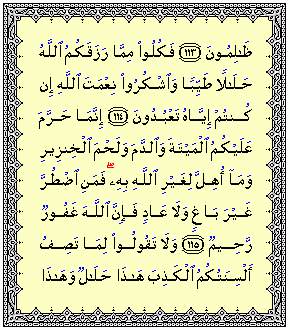 ظَٰلِمُونَ ١١٣ فَكُلُوا۟ مِمَّا رَزَقَكُمُ ٱللَّهُ
حَلَٰلًا طَيِّبًا وَٱشْكُرُوا۟ نِعْمَتَ ٱللَّهِ إِن
كُنتُمْ إِيَّاهُ تَعْبُدُونَ ١١٤ إِنَّمَا حَرَّمَ
عَلَيْكُمُ ٱلْمَيْتَةَ وَٱلدَّمَ وَلَحْمَ ٱلْخِنزِيرِ
وَمَآ أُهِلَّ لِغَيْرِ ٱللَّهِ بِهِۦ ۖ فَمَنِ ٱضْطُرَّ
غَيْرَ بَاغٍ وَلَا عَادٍ فَإِنَّ ٱللَّهَ غَفُورٌ
رَّحِيمٌ ١١٥ وَلَا تَقُولُوا۟ لِمَا تَصِفُ
أَلْسِنَتُكُمُ ٱلْكَذِبَ هَٰذَا حَلَٰلٌ وَهَٰذَا